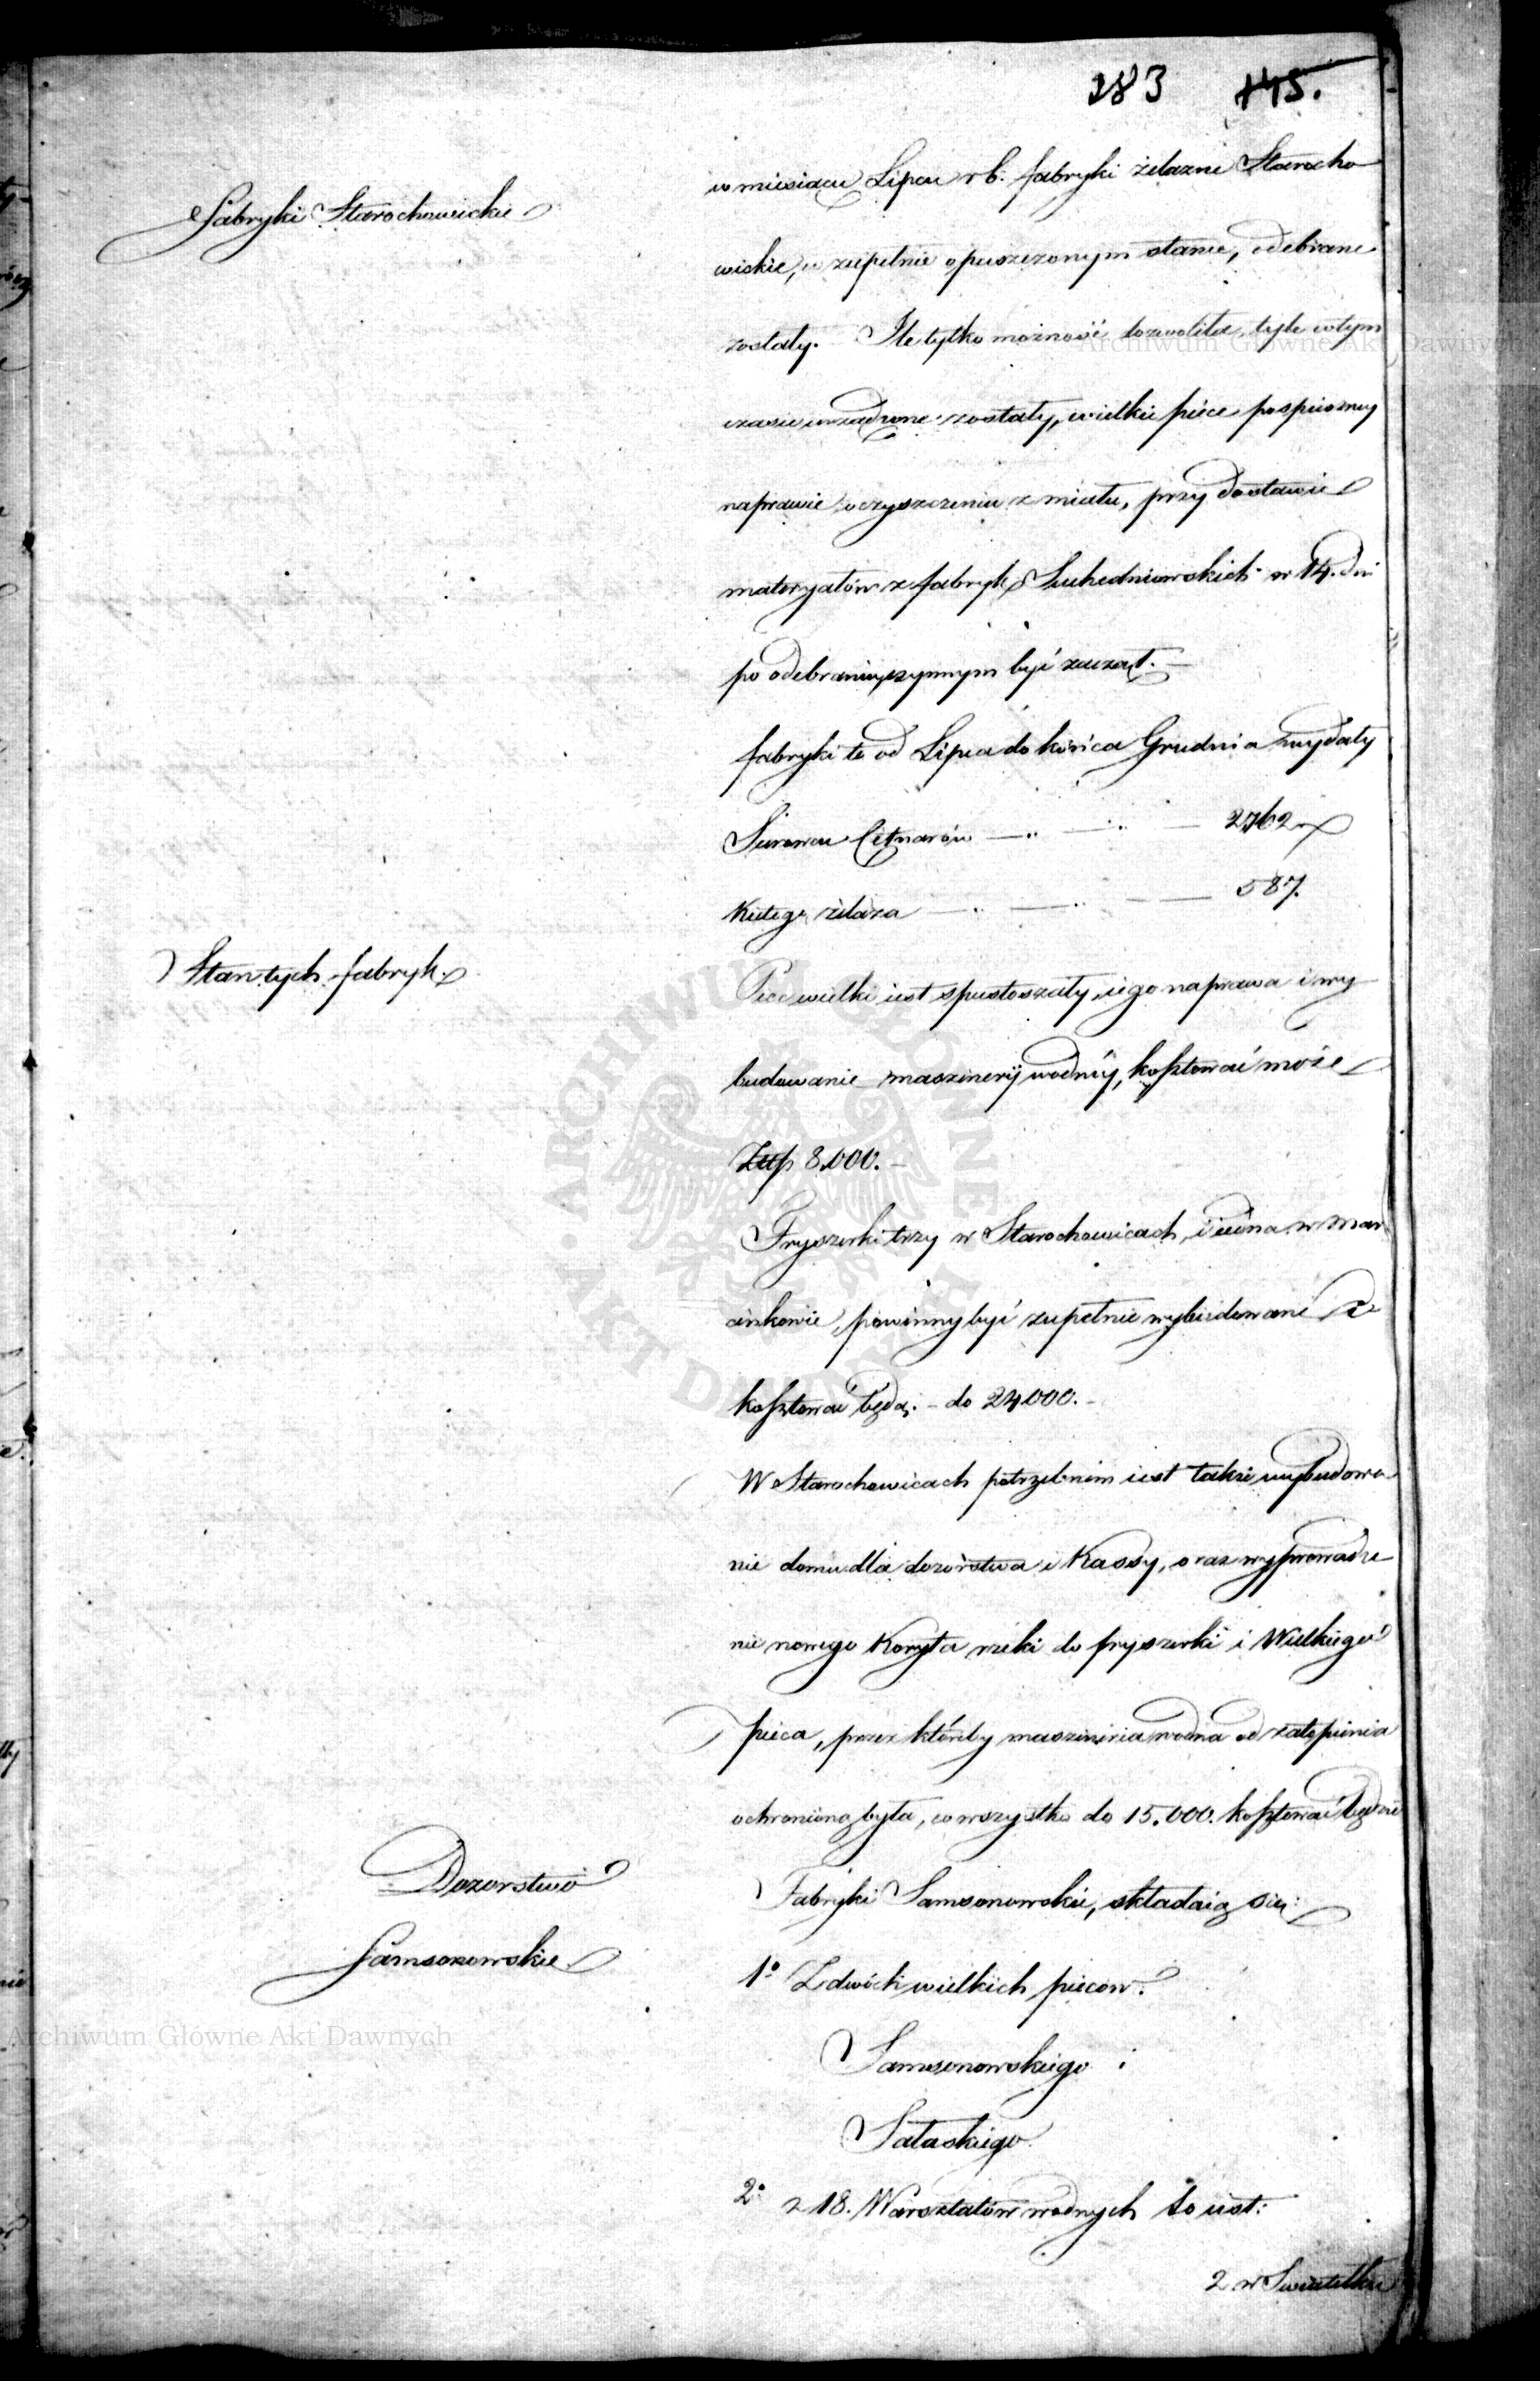 283 145.
Fabryki Starochowickie
w miesiącu Lipcu r b. fabryki żelazne Starocho
wickie, w zupełnie opuszczonym stanie, odebrane
zostały. Ile tylko możność dozwoliła, tyle w tym
czasie urządzone zostały, wielki piec po spieszney
naprawie i oczyszczeniu z miału, przy dostawie
materyałów z fabryk Suchedniowskich w 14. dni
po odebraniu, czynnym być zaczął.
fabryki te od Lipca do końca Grudnia wydały
Surowcu Cetnarów 2762
Kutego żelaza 587.
Stan tych fabryk.
Piec wielki iest spustoszały, iego naprawa i wy
budowanie maszineryi wodnéy, kosztować może
Złłp 8.000.
Fryszerki trzy w Starochowicach, i iedna w Mar
cinkowie, powinny być zupełnie wybudowane i
kosztować będą. do 24000.
W Starochowicach potrzebnem iest także wybudowa
nie domu dla dozorstwa i Kassy, oraz wyprowadze
nie nowego Koryta rzeki do fryszerki i Wielkiego
pieca, przez któreby maszineria wodna od zatopienia
ochronioną była, co wszystko do 15.000. kosztować będzie
Dozorstwo
Samsonowskie
Fabryki Samsonowskie, składaią się:
1° Z dwóch wielkich pieców.
Samsonowskiego i
Sałaskiego
2° z 18. Warsztatów wodnych to iest:
2 w
Archiwum Główne Akt Dawnych
Archiwum Główne Akt Dawnych
ARCHIWUM GŁÓWNE AKT DAWNYCH